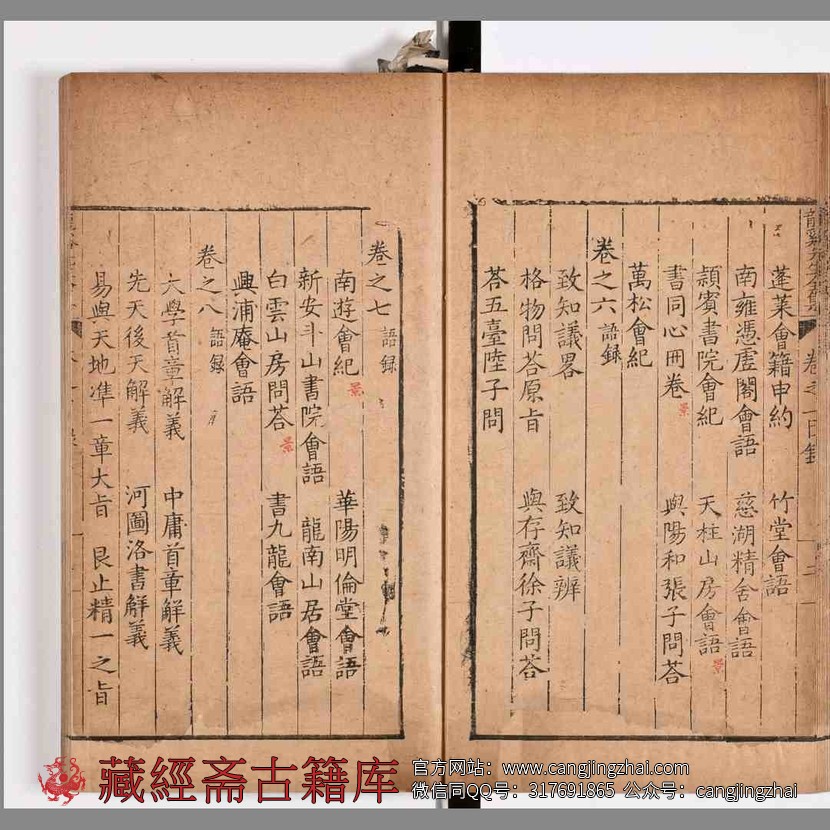 蓬萊會籍申約　竹堂會語
南雍憑虛閣會語　慈湖精舍會語
穎賓書院會紀　天柱山房會語 景
書同心冊卷 景　與陽和張子問荅
萬松會紀
卷之六 語錄
致知議畧　致知議辨
格物問荅原旨　與存齋徐子問荅
荅五臺陸子問
卷之七 語錄
南遊會紀 景　華陽明倫堂會語
新安斗山書院會語　龍南山居會語
白雲山房問荅 景　書九龍會語
興浦庵會語
卷之八 語錄
大學首章解義　中庸首章解義
先天後天解義　河圖洛書解義
易與天地準一章大旨　艮止精一之旨
藏經斋古籍库
官方网站：www.cangjingzhai.com
微信同QQ号：317691865 公众号：cangjingzhai